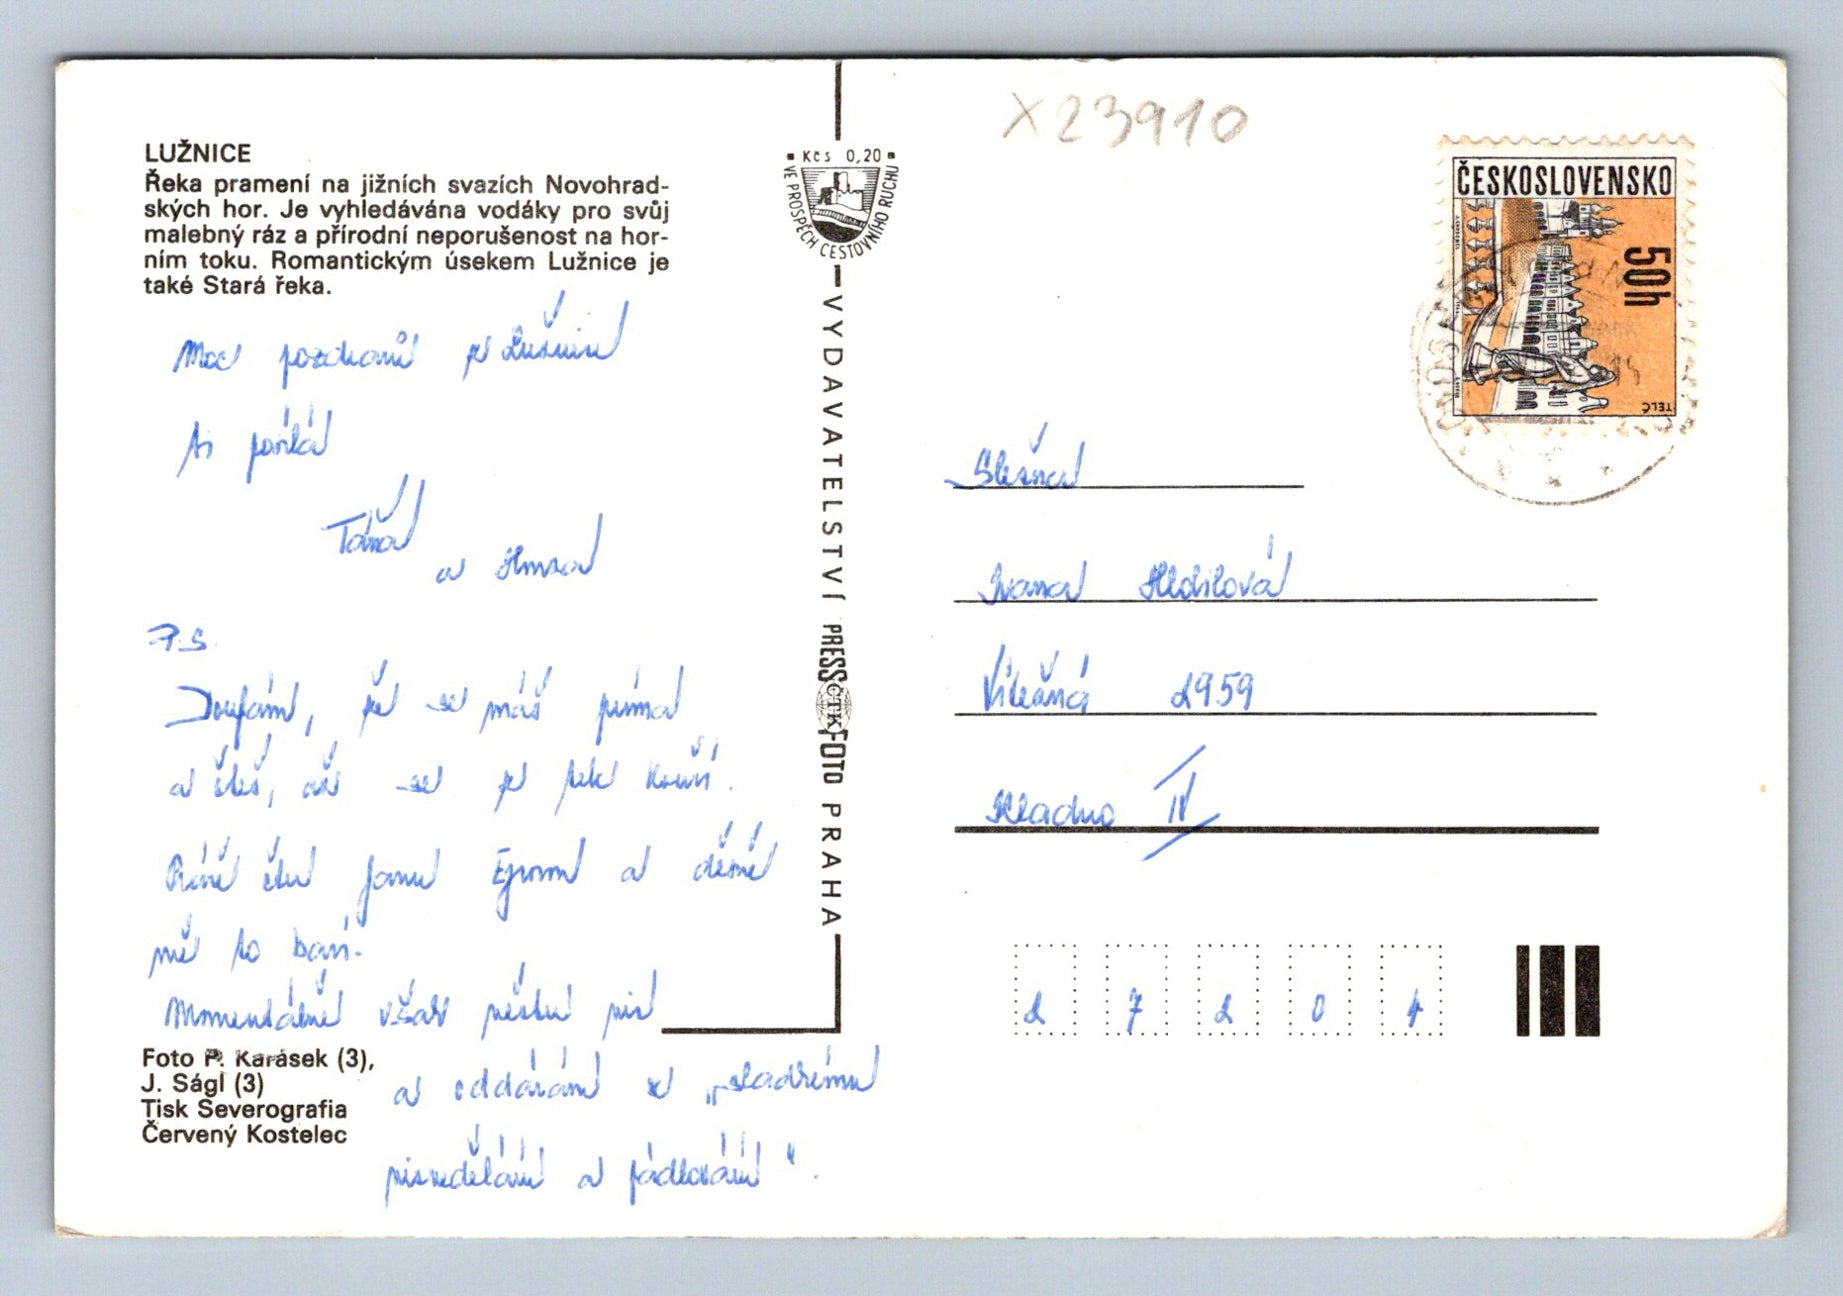 LUŽNICE
Řeka pramení na jižních svazích Novohrad-
ských hor. Je vyhledávána vodáky pro svůj
malebný ráz a přírodní neporušenost na hor-
ním toku. Romantickým úsekem Lužnice je
také Stará řeka.
Moc pozdravů z Lužnice
Ti posílá
Táňa
a Honza
P.S.
Doufám, že se máš prima
a čteš, až se z Tebe kouří.
Právě čtu Janu Eyrovou a děsně
mě to baví.
Momentálně však nečtu nic
a oddávám se „sladkému
nicnedělání a pádlování“.
Foto P. Karásek (3),
J. Ságl (3)
Tisk Severografia
Červený Kostelec
Kčs 0,20
VE PROSPĚCH CESTOVNÍHO RUCHU
VYDAVATELSTVÍ PRESSFOTO PRAHA
ČTK
X23910
ČESKOSLOVENSKO
50h
TELČ
Slečna
Ivana
2959
Kladno II
2 7 2 0 1